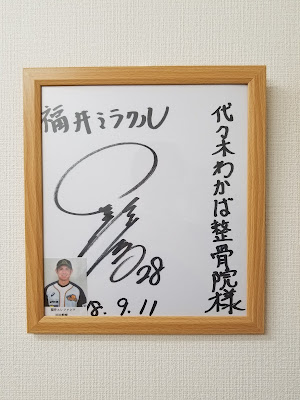 代々木わかば整骨院様
福井ミラクル
28
8.9.11